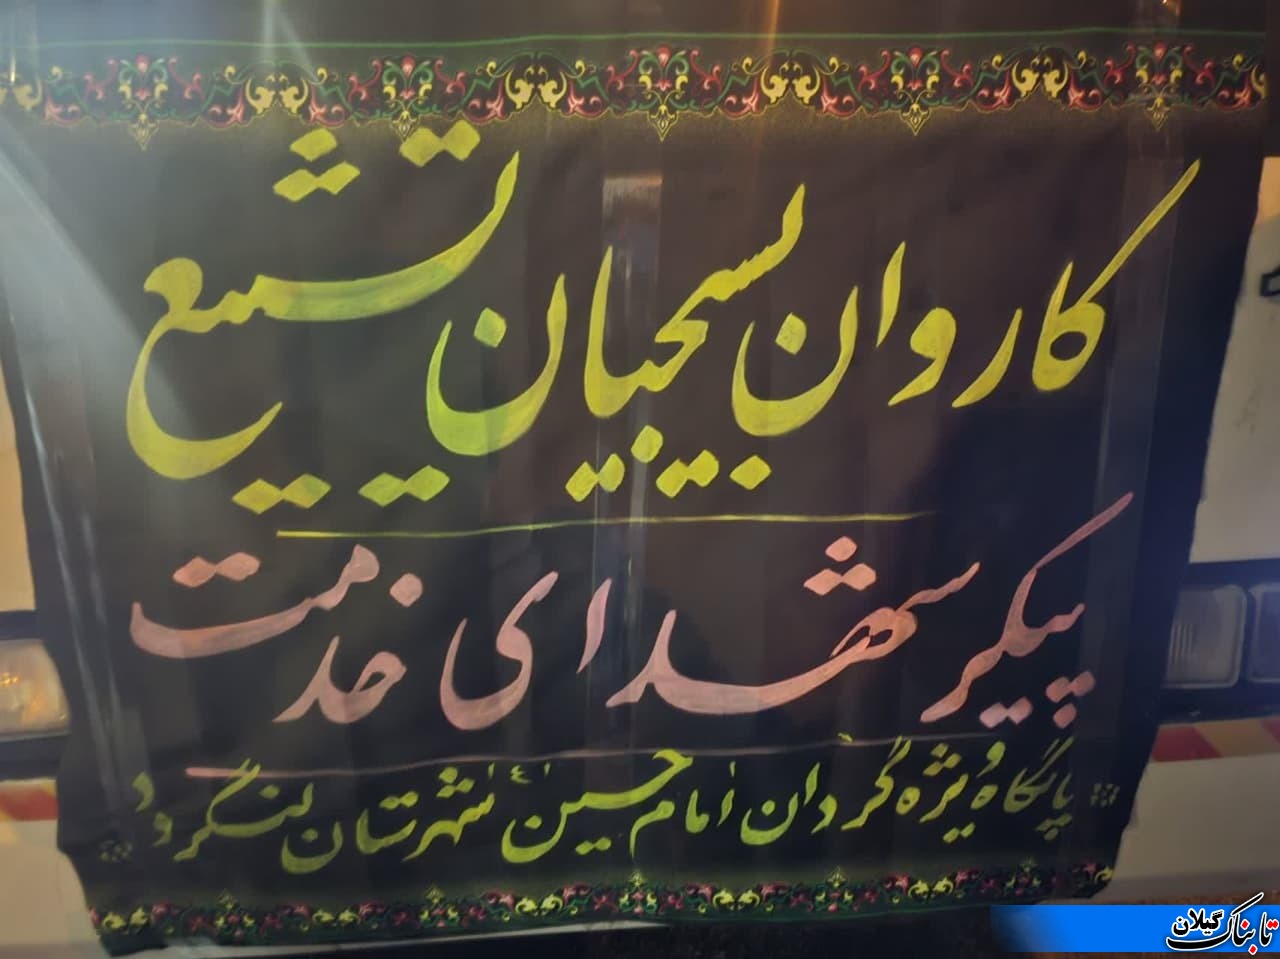 کاروان بسیجیان تشییع
پیکر شهدای خدمت
پایگاه ویژه گردان امام حسین ع شهرستان لنگرود
تابناک گیلان